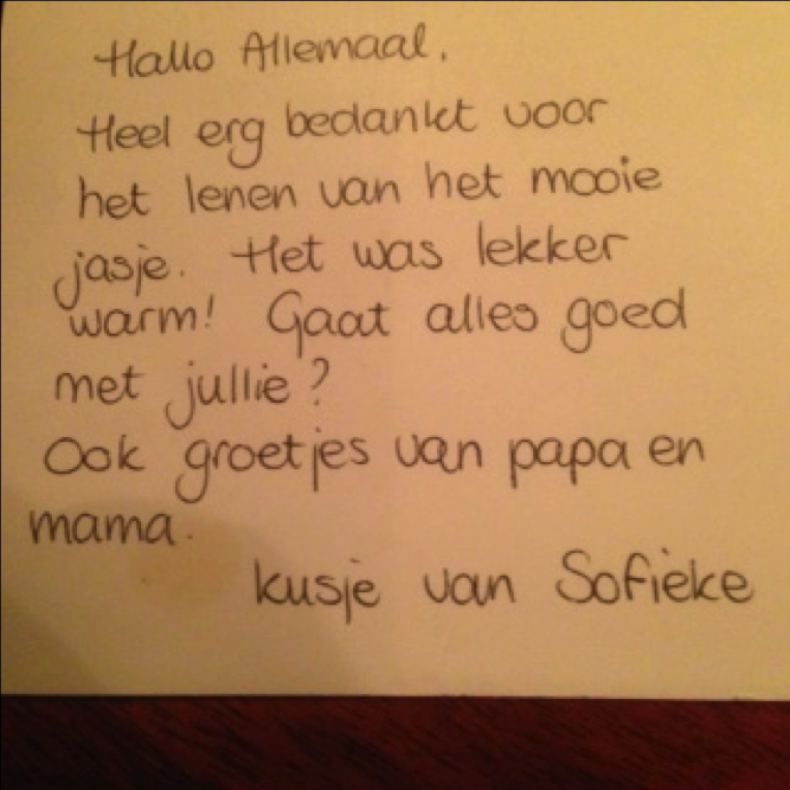 Hallo Allemaal.
Heel erg bedankt voor
het lenen van het mooie
jasje. Het was lekker
warm! Gaat alles goed
met jullie?
Ook groetjes van papa en
mama.
kusje van Sofieke